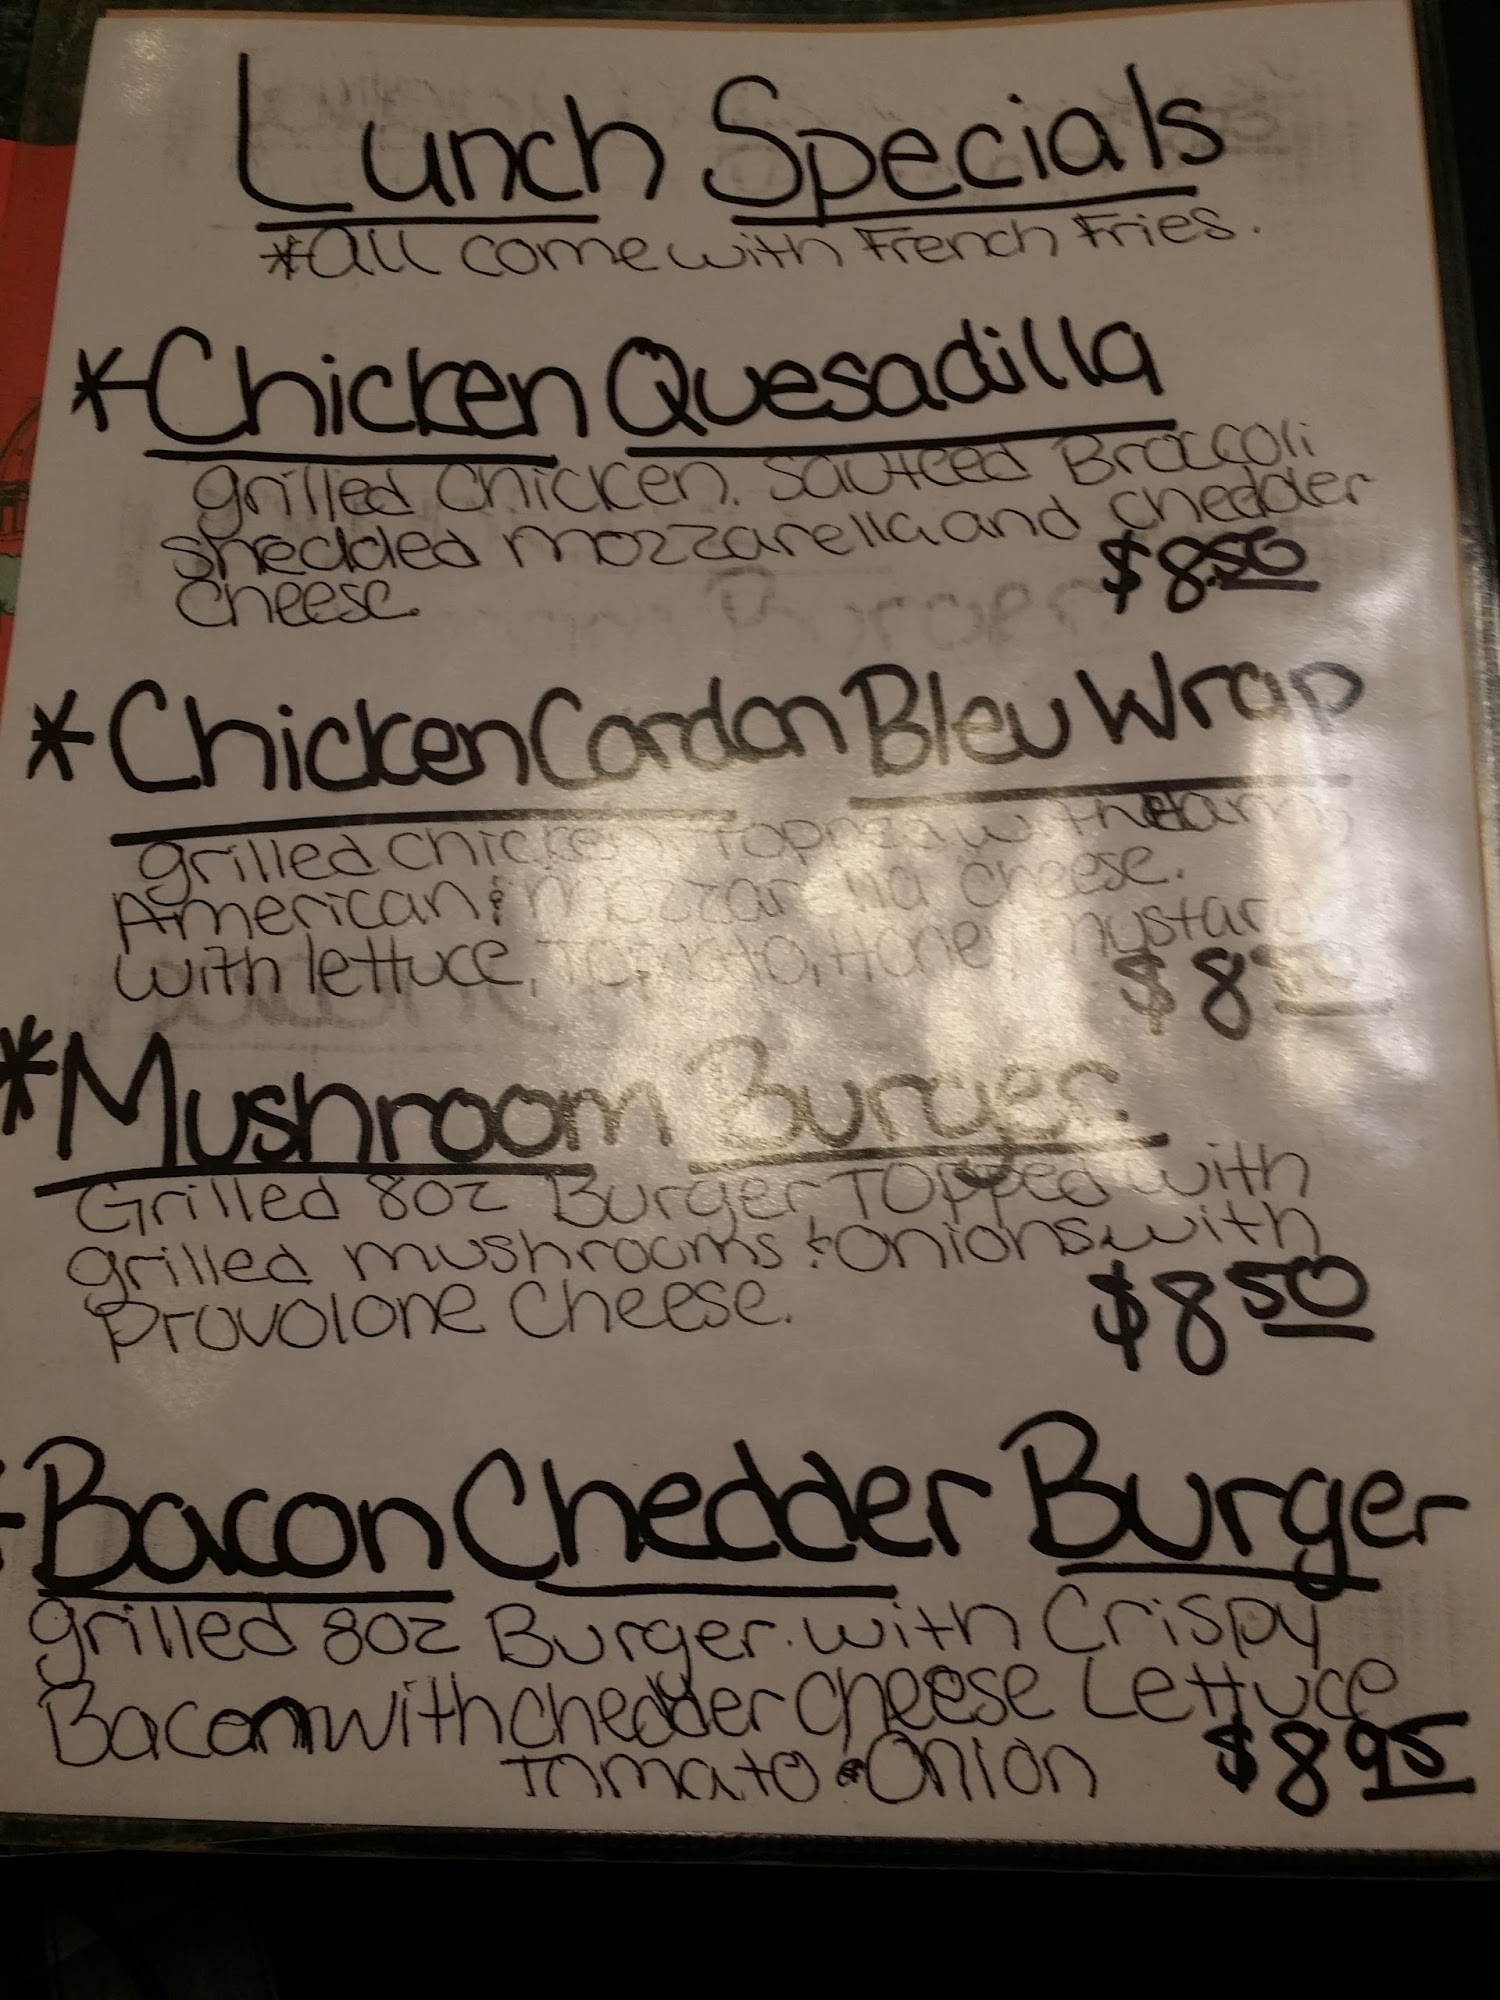 Lunch Specials
*All come with French Fries.
*Chicken Quesadilla
grilled chicken. Sauteed Broccoli
shedded mozzarella and chedder
cheese. $8.50
*Chicken Cordon Bleu Wrap
grilled chicken Topped with Ham,
American & mozzarella cheese.
with lettuce, Tomato, Honey mustard
$8
*Mushroom Burger.
Grilled 8oz Burger Topped with
grilled mushrooms & onions with
Provolone Cheese. $8 50
*Bacon Chedder Burger
grilled 8oz Burger. with Crispy
Bacon with chedder cheese Lettuce
Tomato • Onion $8 95